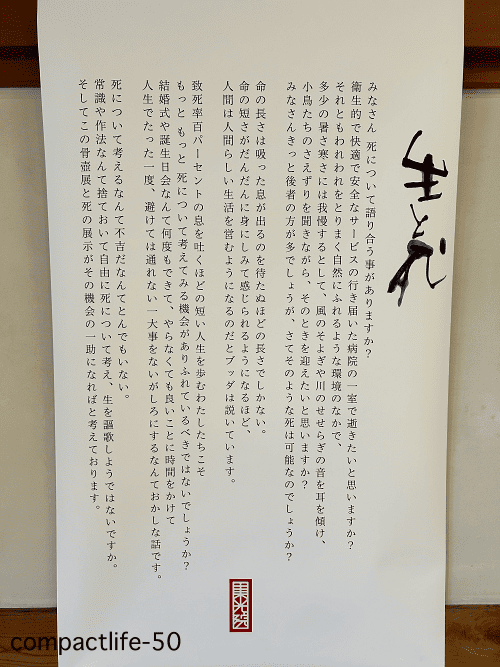 生と死
みなさん 死について語り合う事がありますか？
衛生的で快適で安全なサービスの行き届いた病院の一室で逝きたいと思いますか？
それともわれわれをとりまく自然にふれるような環境のなかで、
多少の暑さ寒さには我慢するとして、風のそよぎや川のせせらぎの音を耳を傾け、
小鳥たちのさえずりを聞きながら、そのときを迎えたいと思いますか？
みなさんきっと後者の方が多でしょうが、さてそのような死は可能なのでしょうか？
命の長さは吸った息が出るのを待たぬほどの長さでしかない。
命の短さがだんだんに身にしみて感じられるようになるほど、
人間は人間らしい生活を営むようになるのだとブッダは説いています。
致死率百パーセントの息を吐くほどの短い人生を歩むわたしたちこそ
もっと もっと 死について考えてみる機会がありふれているべきではないでしょうか？
結婚式や誕生日会なんて何度もできて、やらなくても良いことに時間をかけて
人生でたった一度、避けては通れない一大事をないがしろにするなんておかしな話です。
死について考えるなんて不吉だなんてとんでもない。
常識や作法なんて捨ておいて自由に死について考え、生を謳歌しようではないですか。
そしてこの骨壺展と死の展示がその機会の一助になればと考えております。
compactlife-50